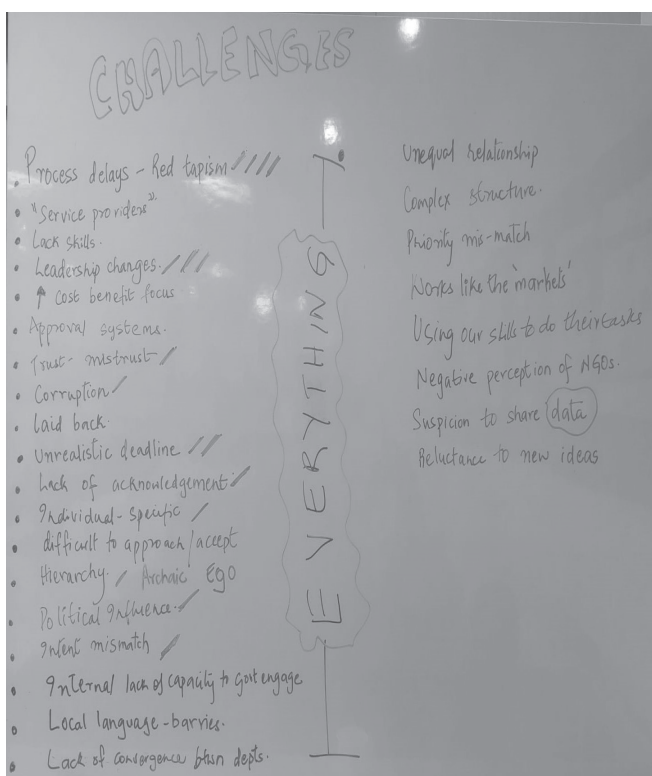 CHALLENGES
• Process delays - Red tapism ////
• "Service providers".
• Lack skills.
• Leadership changes. ///
• ↑ Cost benefit focus
• Approval systems.
• Trust - mistrust /
• Corruption /
• Laid back.
• Unrealistic deadline //
• Lack of acknowledgement /
• Individual - Specific /
• difficult to approach/accept
• Hierarchy. / Archaic Ego
• Political Influence. /
• Intent mismatch /
• Internal lack of capacity to govt engage
• Local language - barries.
• Lack of convergence btwn depts.
EVERYTHING
Unequal relationship
Complex structure.
Priority mis-match
Works like the 'markets'
Using our skills to do their tasks
Negative perception of NGOs.
Suspicion to share data
Reluctance to new ideas